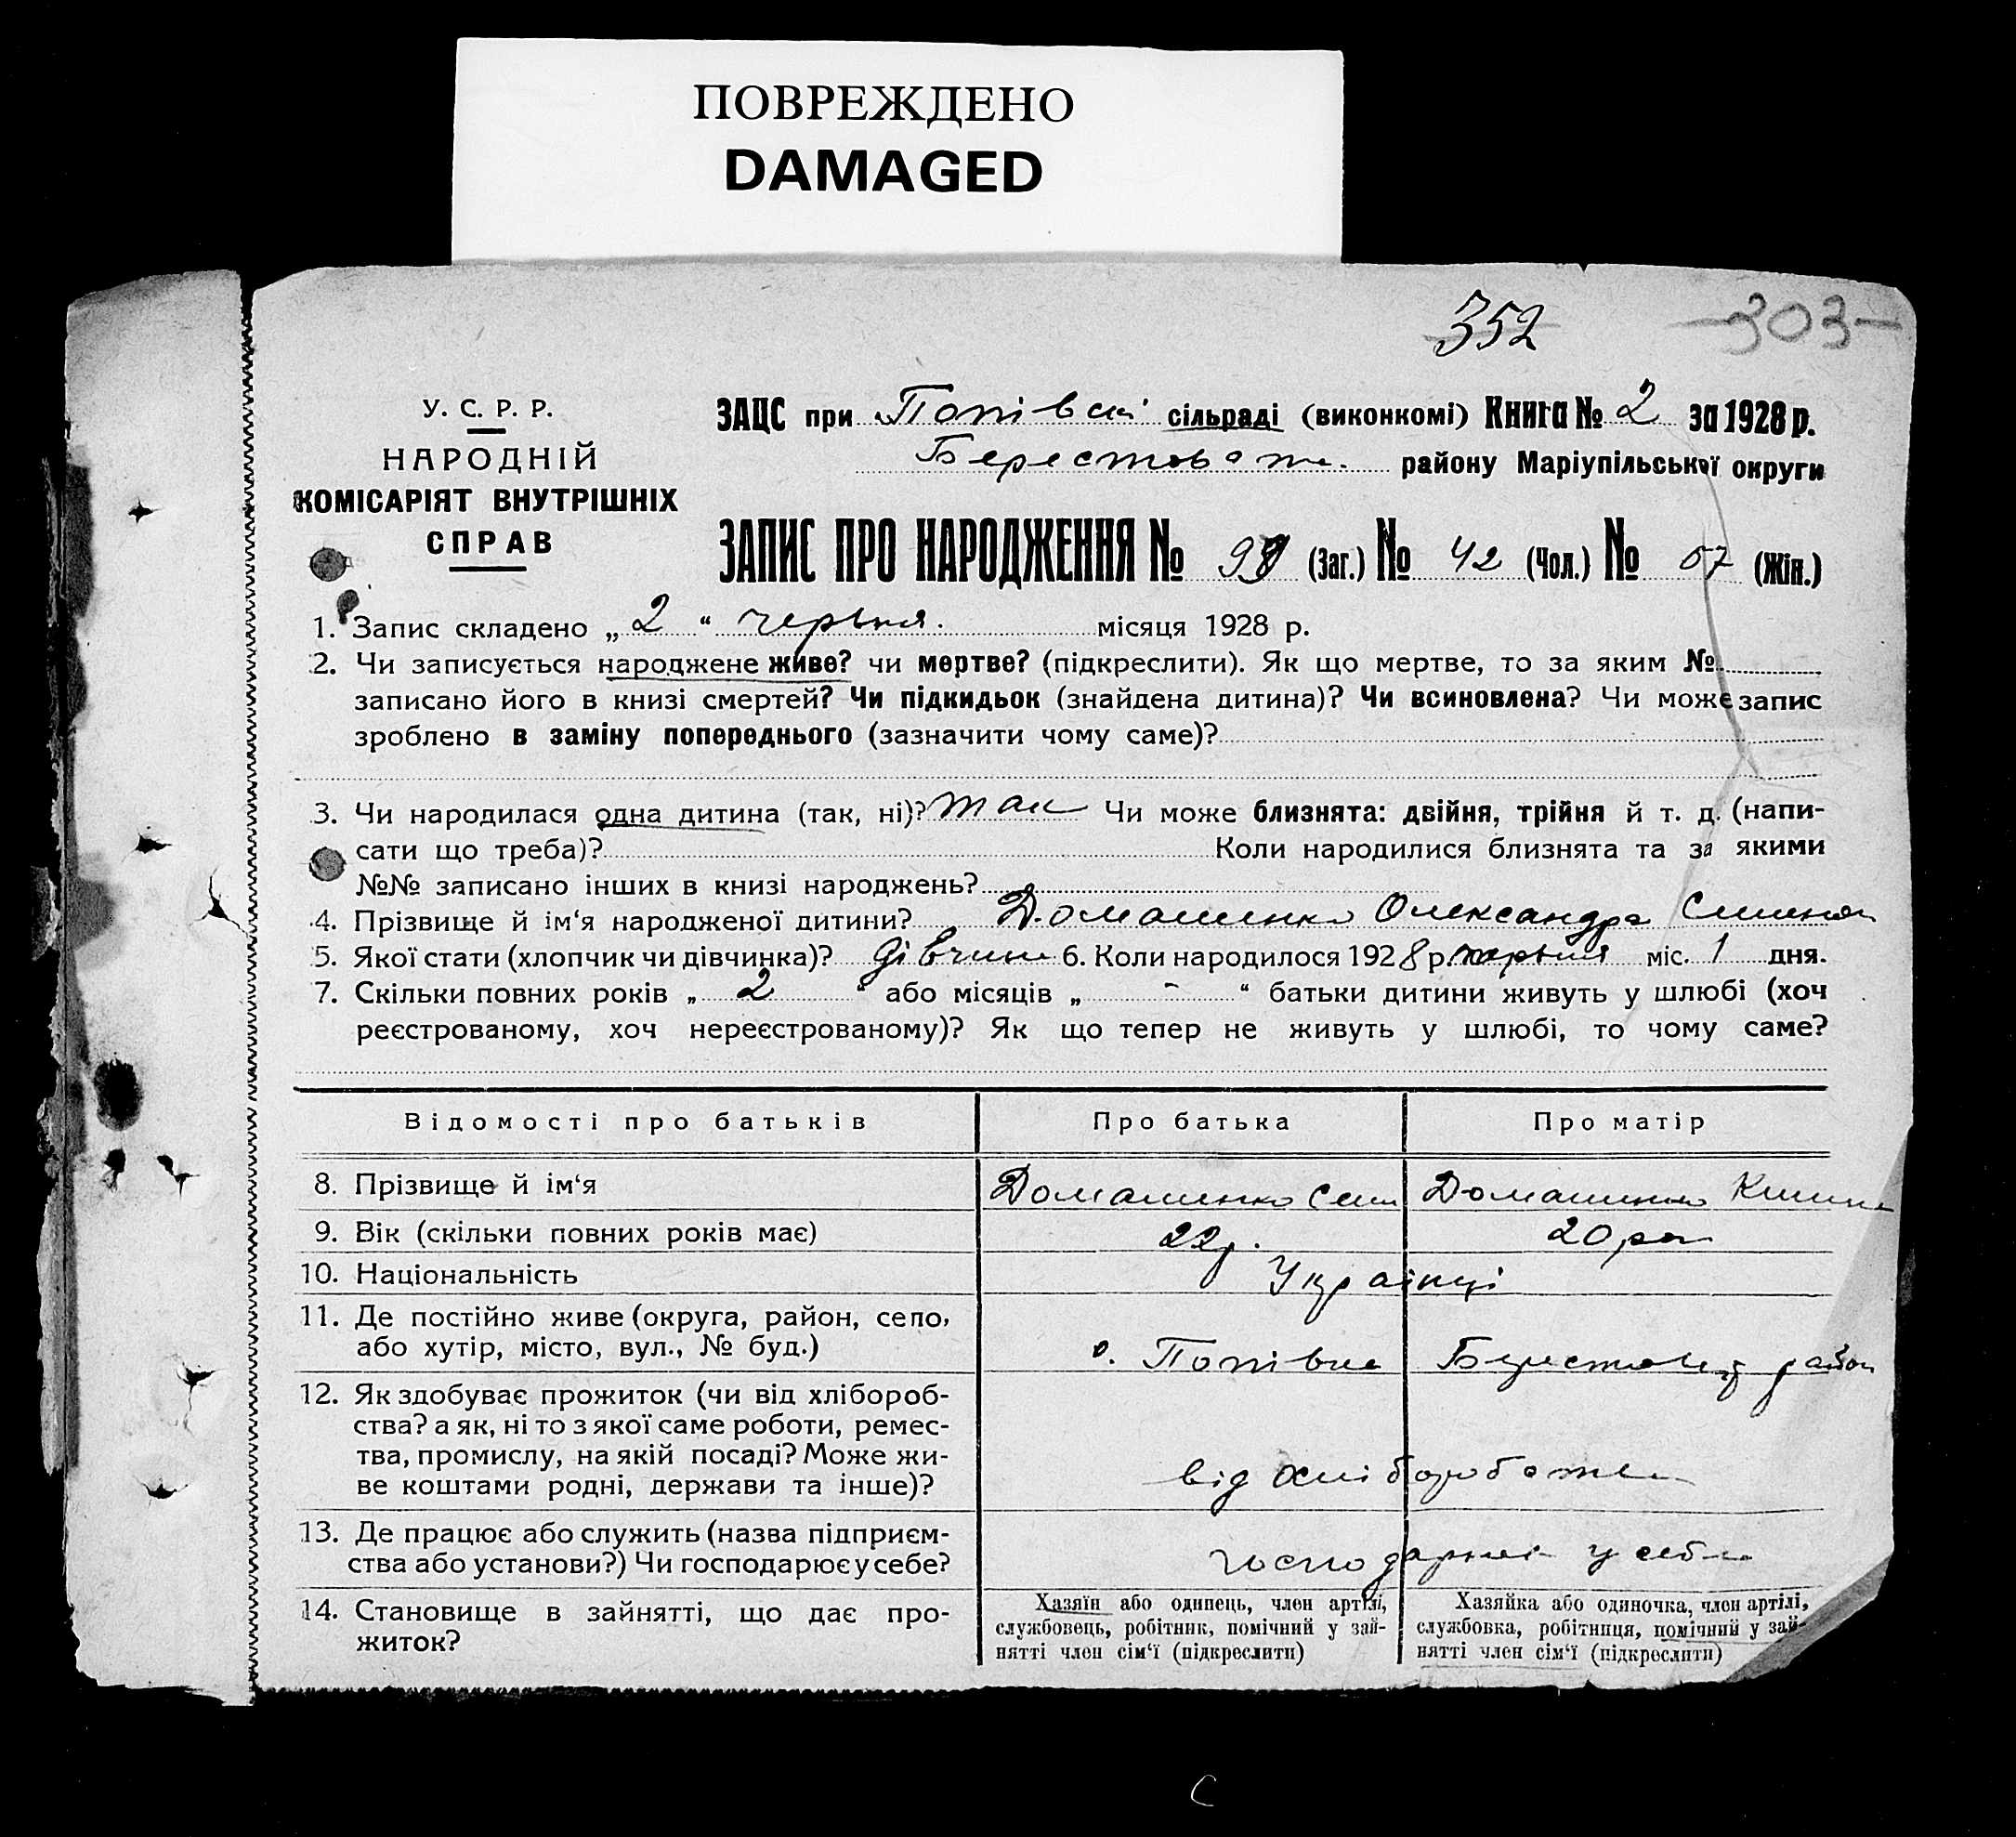 ПОВРЕЖДЕНО
DAMAGED
352
303
У. С. Р. Р.
НАРОДНІЙ
КОМІСАРІЯТ ВНУТРІШНІХ
СПРАВ
ЗАЦС при Попівські сільраді (виконкомі) Книга № 2 за 1928 р.
Берестоват. району Маріупільської округи
ЗАПИС ПРО НАРОДЖЕННЯ № 99 (Заг.) № 42 (Чол.) № 57 (Жін.)
1. Запис складено „ 2 “ червня. місяця 1928 р.
2. Чи записується народжене живе? чи мертве? (підкреслити). Як що мертве, то за яким №
записано його в книзі смертей? Чи підкидьок (знайдена дитина)? Чи всиновлена? Чи може запис
зроблено в заміну попереднього (зазначити чому саме)?
3. Чи народилася одна дитина (так, ні)? так Чи може близнята: двійня, трійня й т. д. (напи-
сати що треба)? Коли народилися близнята та за якими
№№ записано інших в книзі народжень?
4. Прізвище й ім‘я народженої дитини? Домашенко Олександра
5. Якої стати (хлопчик чи дівчинка)? дівчина 6. Коли народилося 1928 р. червня міс. 1 дня.
7. Скільки повних років „ 2 “ або місяців „ - “ батьки дитини живуть у шлюбі (хоч
реєстрованому, хоч нереєстрованому)? Як що тепер не живуть у шлюбі, то чому саме?
Відомості про батьків Про батька Про матір
8. Прізвище й ім‘я Домашенко Домашенко
9. Вік (скільки повних років має) 22 р. 20 рок
10. Національність Українці
11. Де постійно живе (округа, район, село,
або хутір, місто, вул., № буд.) с. Попівка район
12. Як здобуває прожиток (чи від хлібороб-
ства? а як, ні то з якої саме роботи, ремес-
тва, промислу, на якій посаді? Може жи-
ве коштами родні, держави та інше)? від
13. Де працює або служить (назва підприєм-
ства або установи?) Чи господарює у себе? у себе
14. Становище в зайнятті, що дає про-
житок?
Хазяїн або одинець, член артілі,
службовець, робітник, помічний у зай-
нятті член сім‘ї (підкреслити)
Хазяйка або одиночка, член артілі,
службовка, робітниця, помічний у зай-
нятті член сім‘ї (підкреслити)
С